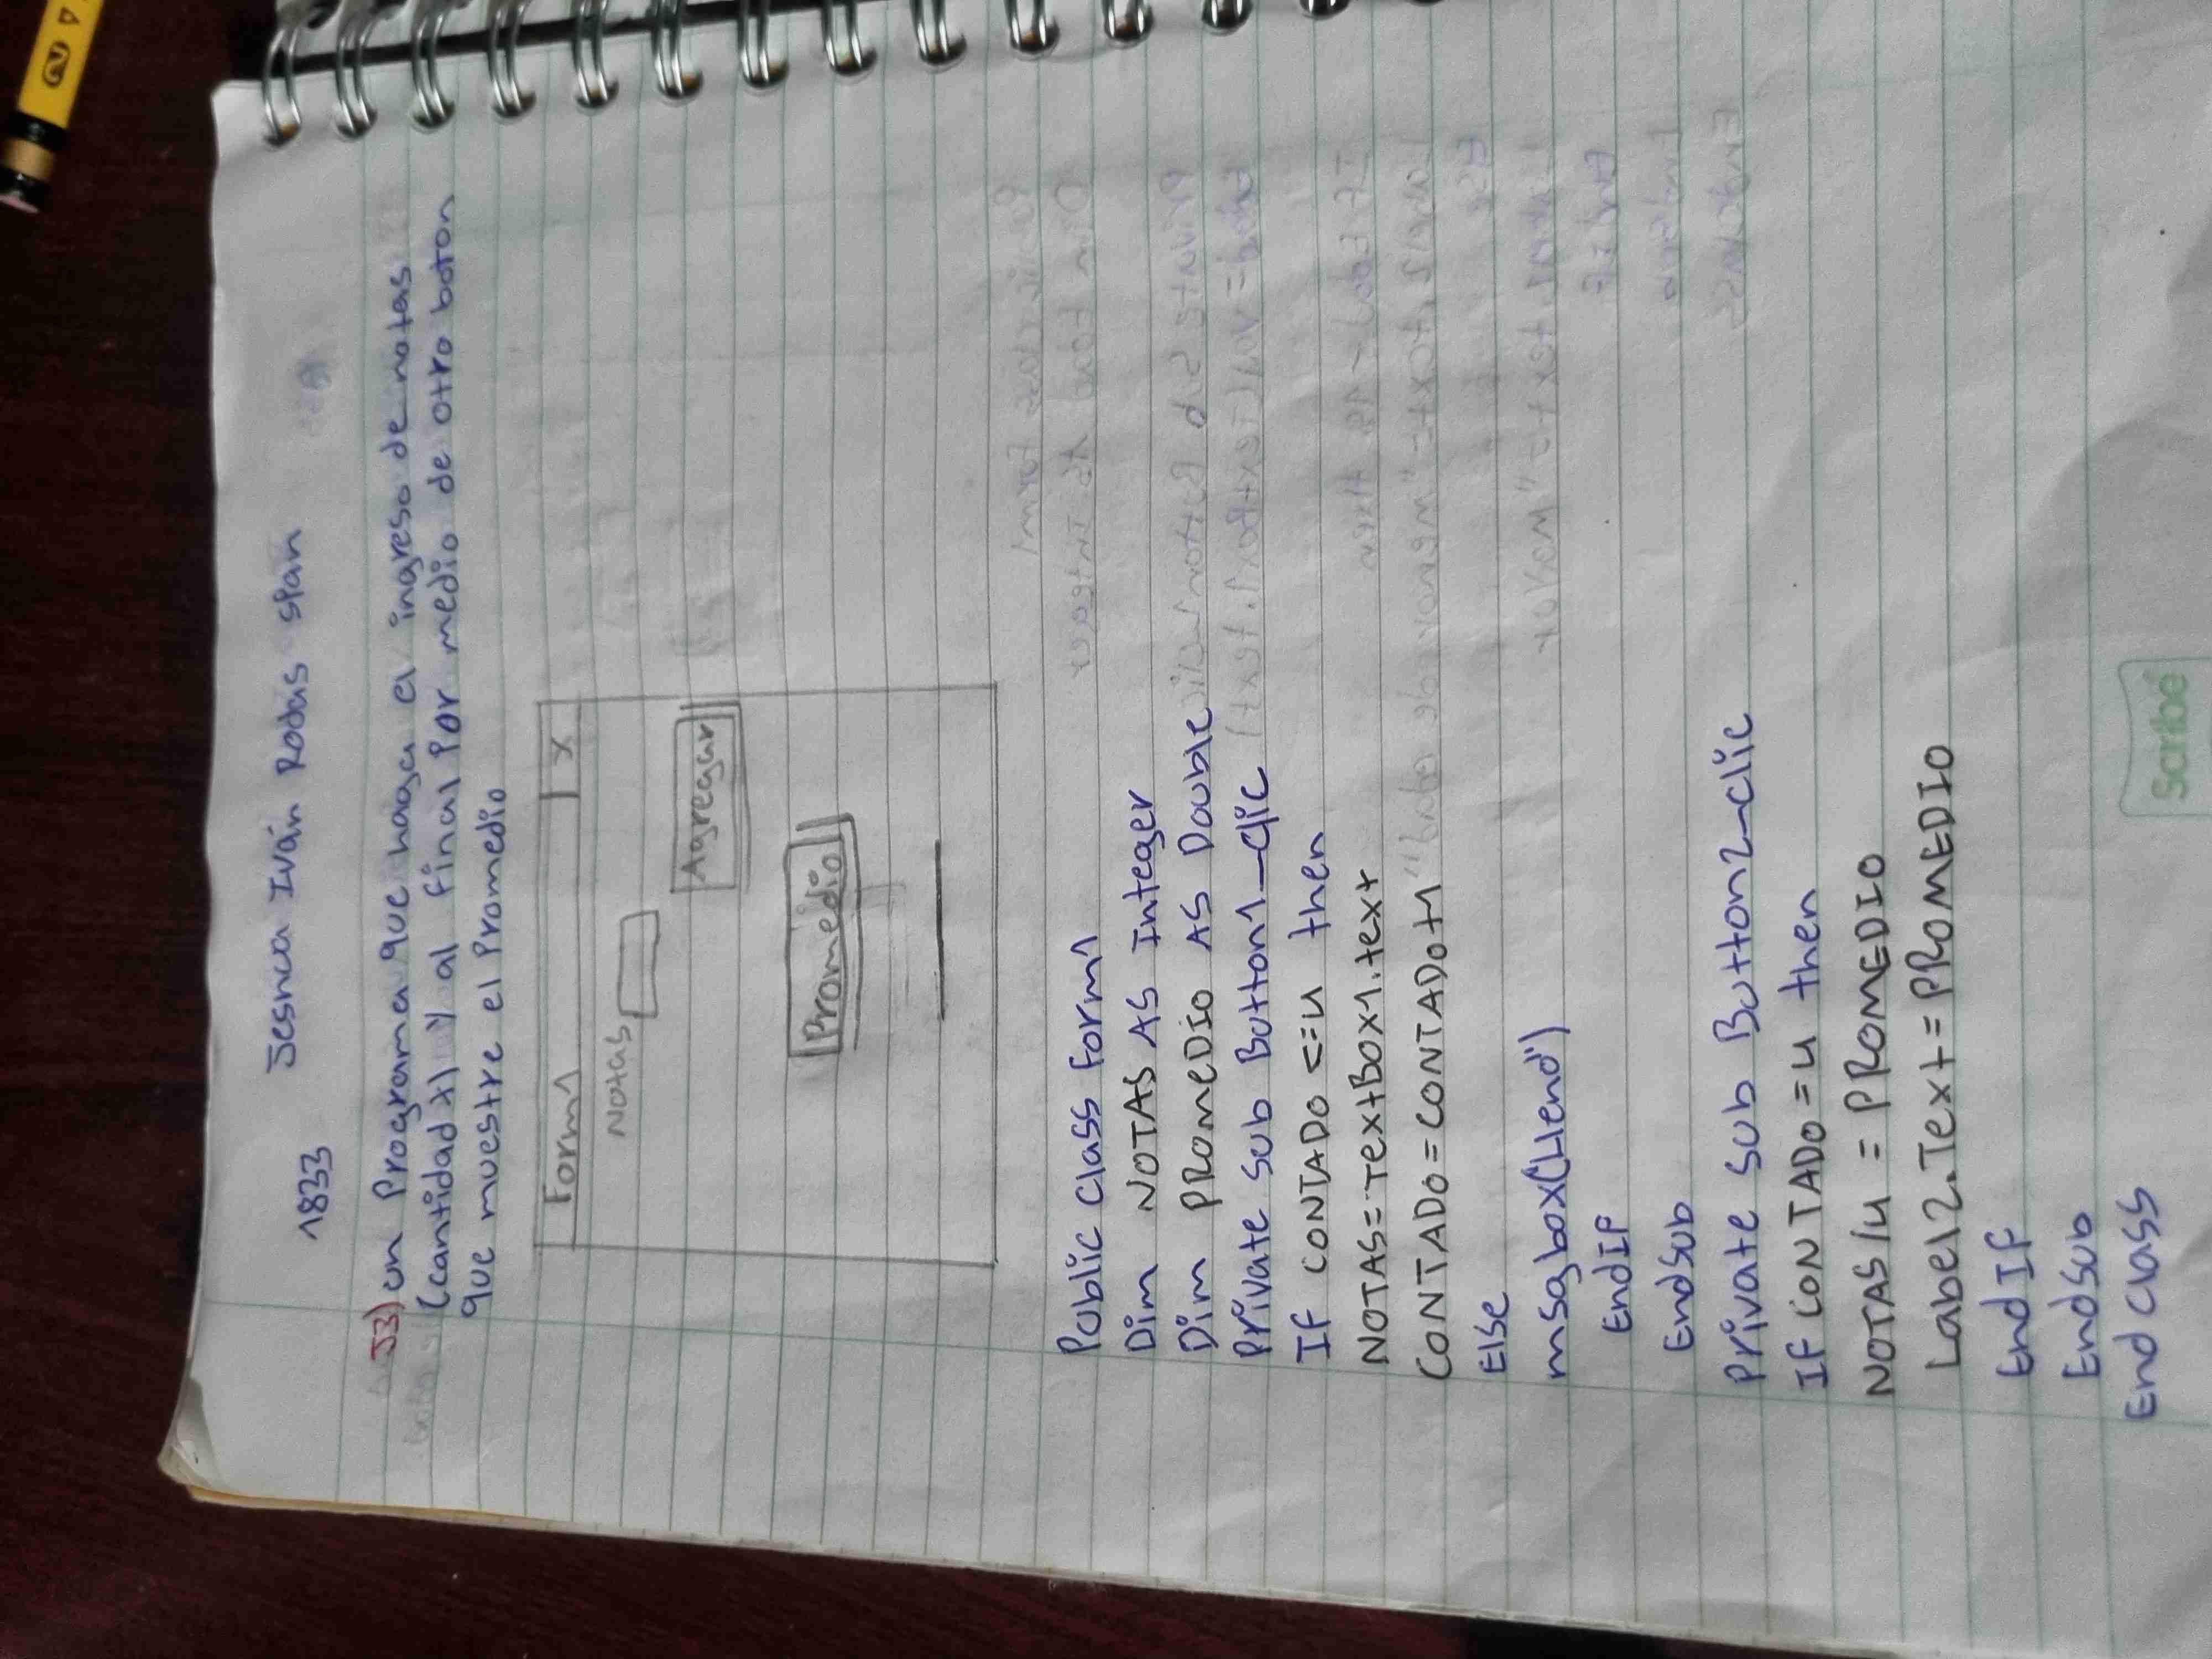 1833 Jesnca Iván Rodas span
J3) un Programa que haga el ingreso de notas
(cantidad x) y al final Por medio de otro boton
que muestre el Promedio
Form1 X
Notas
Agregar
Promedio
Public Class Form1
Dim NOTAS AS Integer
Dim PROMEDIO AS Double
Private Sub Button1_Clic
If CONTADO <=4 then
NOTAS=TextBox1.text
CONTADO=CONTADO+1
Else
msgbox(Lleno")
EndIF
EndSub
Private Sub Button2_clic
If CONTADO=4 then
NOTAS/4 = PROMEDIO
Label2.Text=PROMEDIO
EndIF
EndSub
End class
Scribe